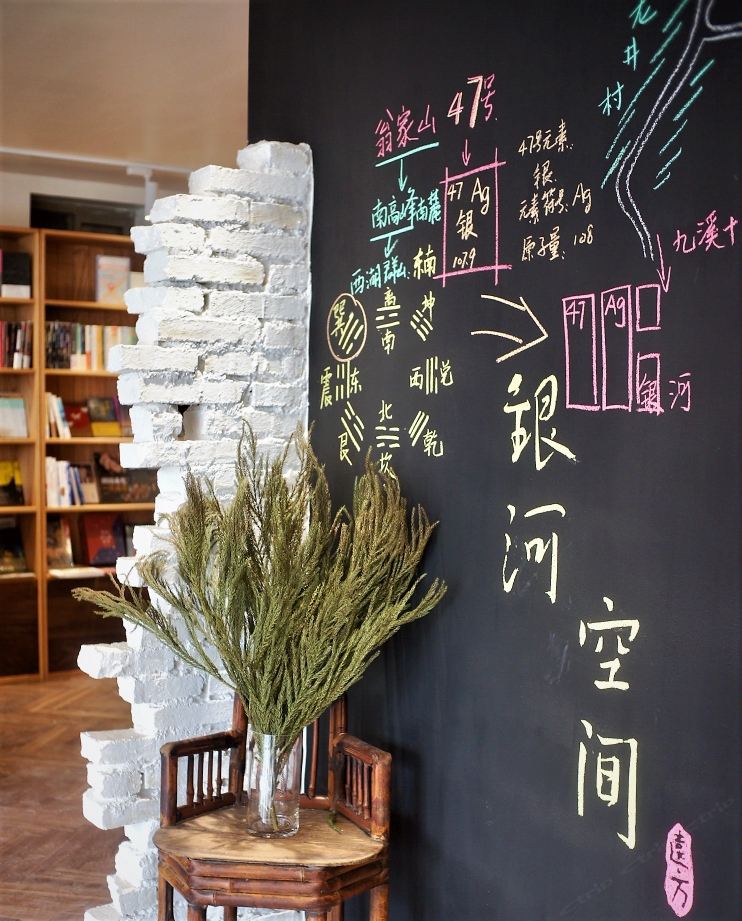 龙井村
翁家山 47号
47号元素:
银
元素符号: Ag
原子量: 108
南高峰南麓
47 Ag
银
107.9
西湖群山: 楠
九溪十
巽 离 坤
南
震 东 西 兑
北
艮 坎 乾
47 Ag
銀河
銀河空间
遠方